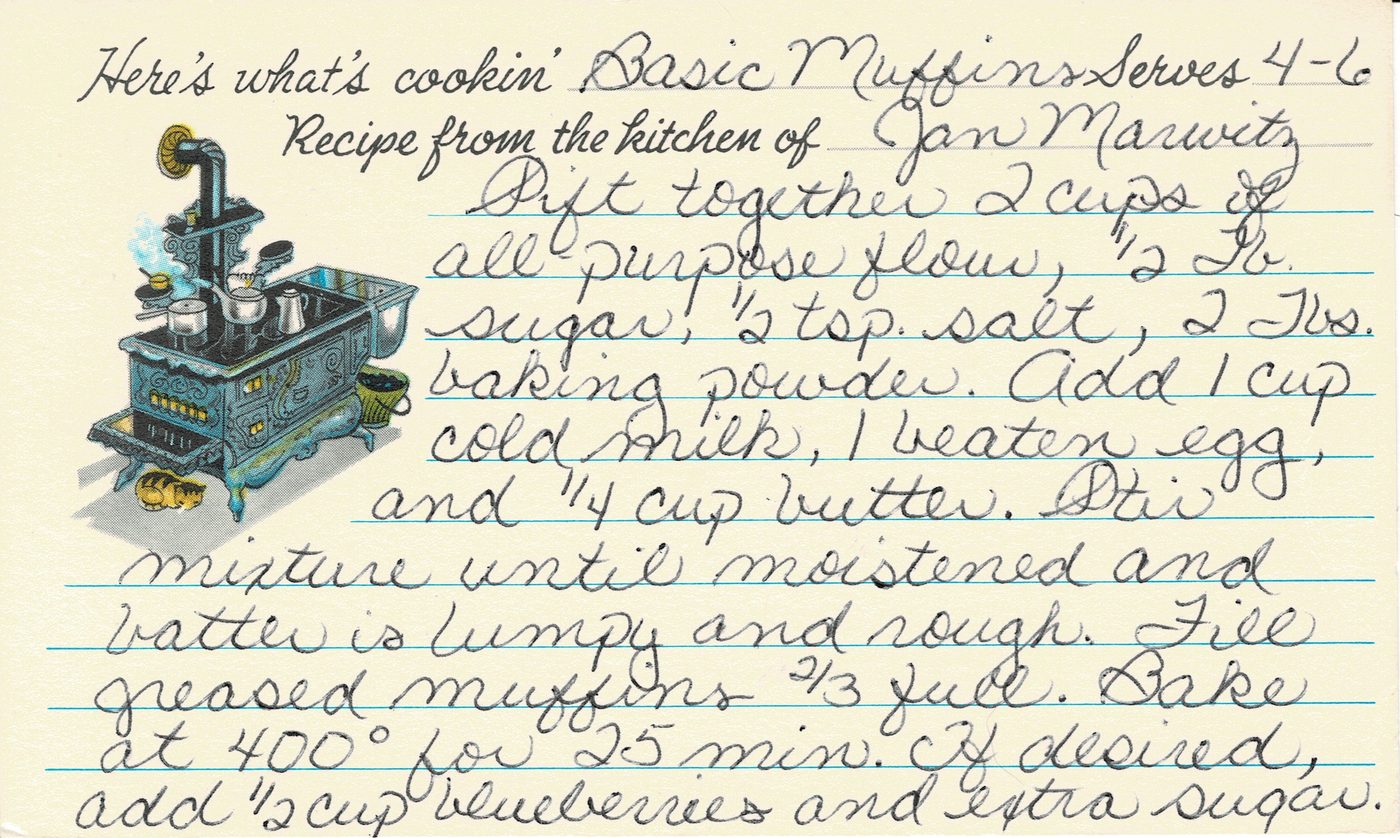 Here's what's cookin' Basic Muffins Serves 4-6
Recipe from the kitchen of Jan Marwitz
Sift together 2 cups of
all-purpose flour, 1/2 Tb.
sugar, 1/2 tsp. salt, 2 Tbs.
baking powder. Add 1 cup
cold milk, 1 beaten egg,
and 1/4 cup butter. Stir
mixture until moistened and
batter is lumpy and rough. Fill
greased muffins 2/3 full. Bake
at 400° for 25 min. If desired,
add 1/2 cup blueberries and extra sugar.